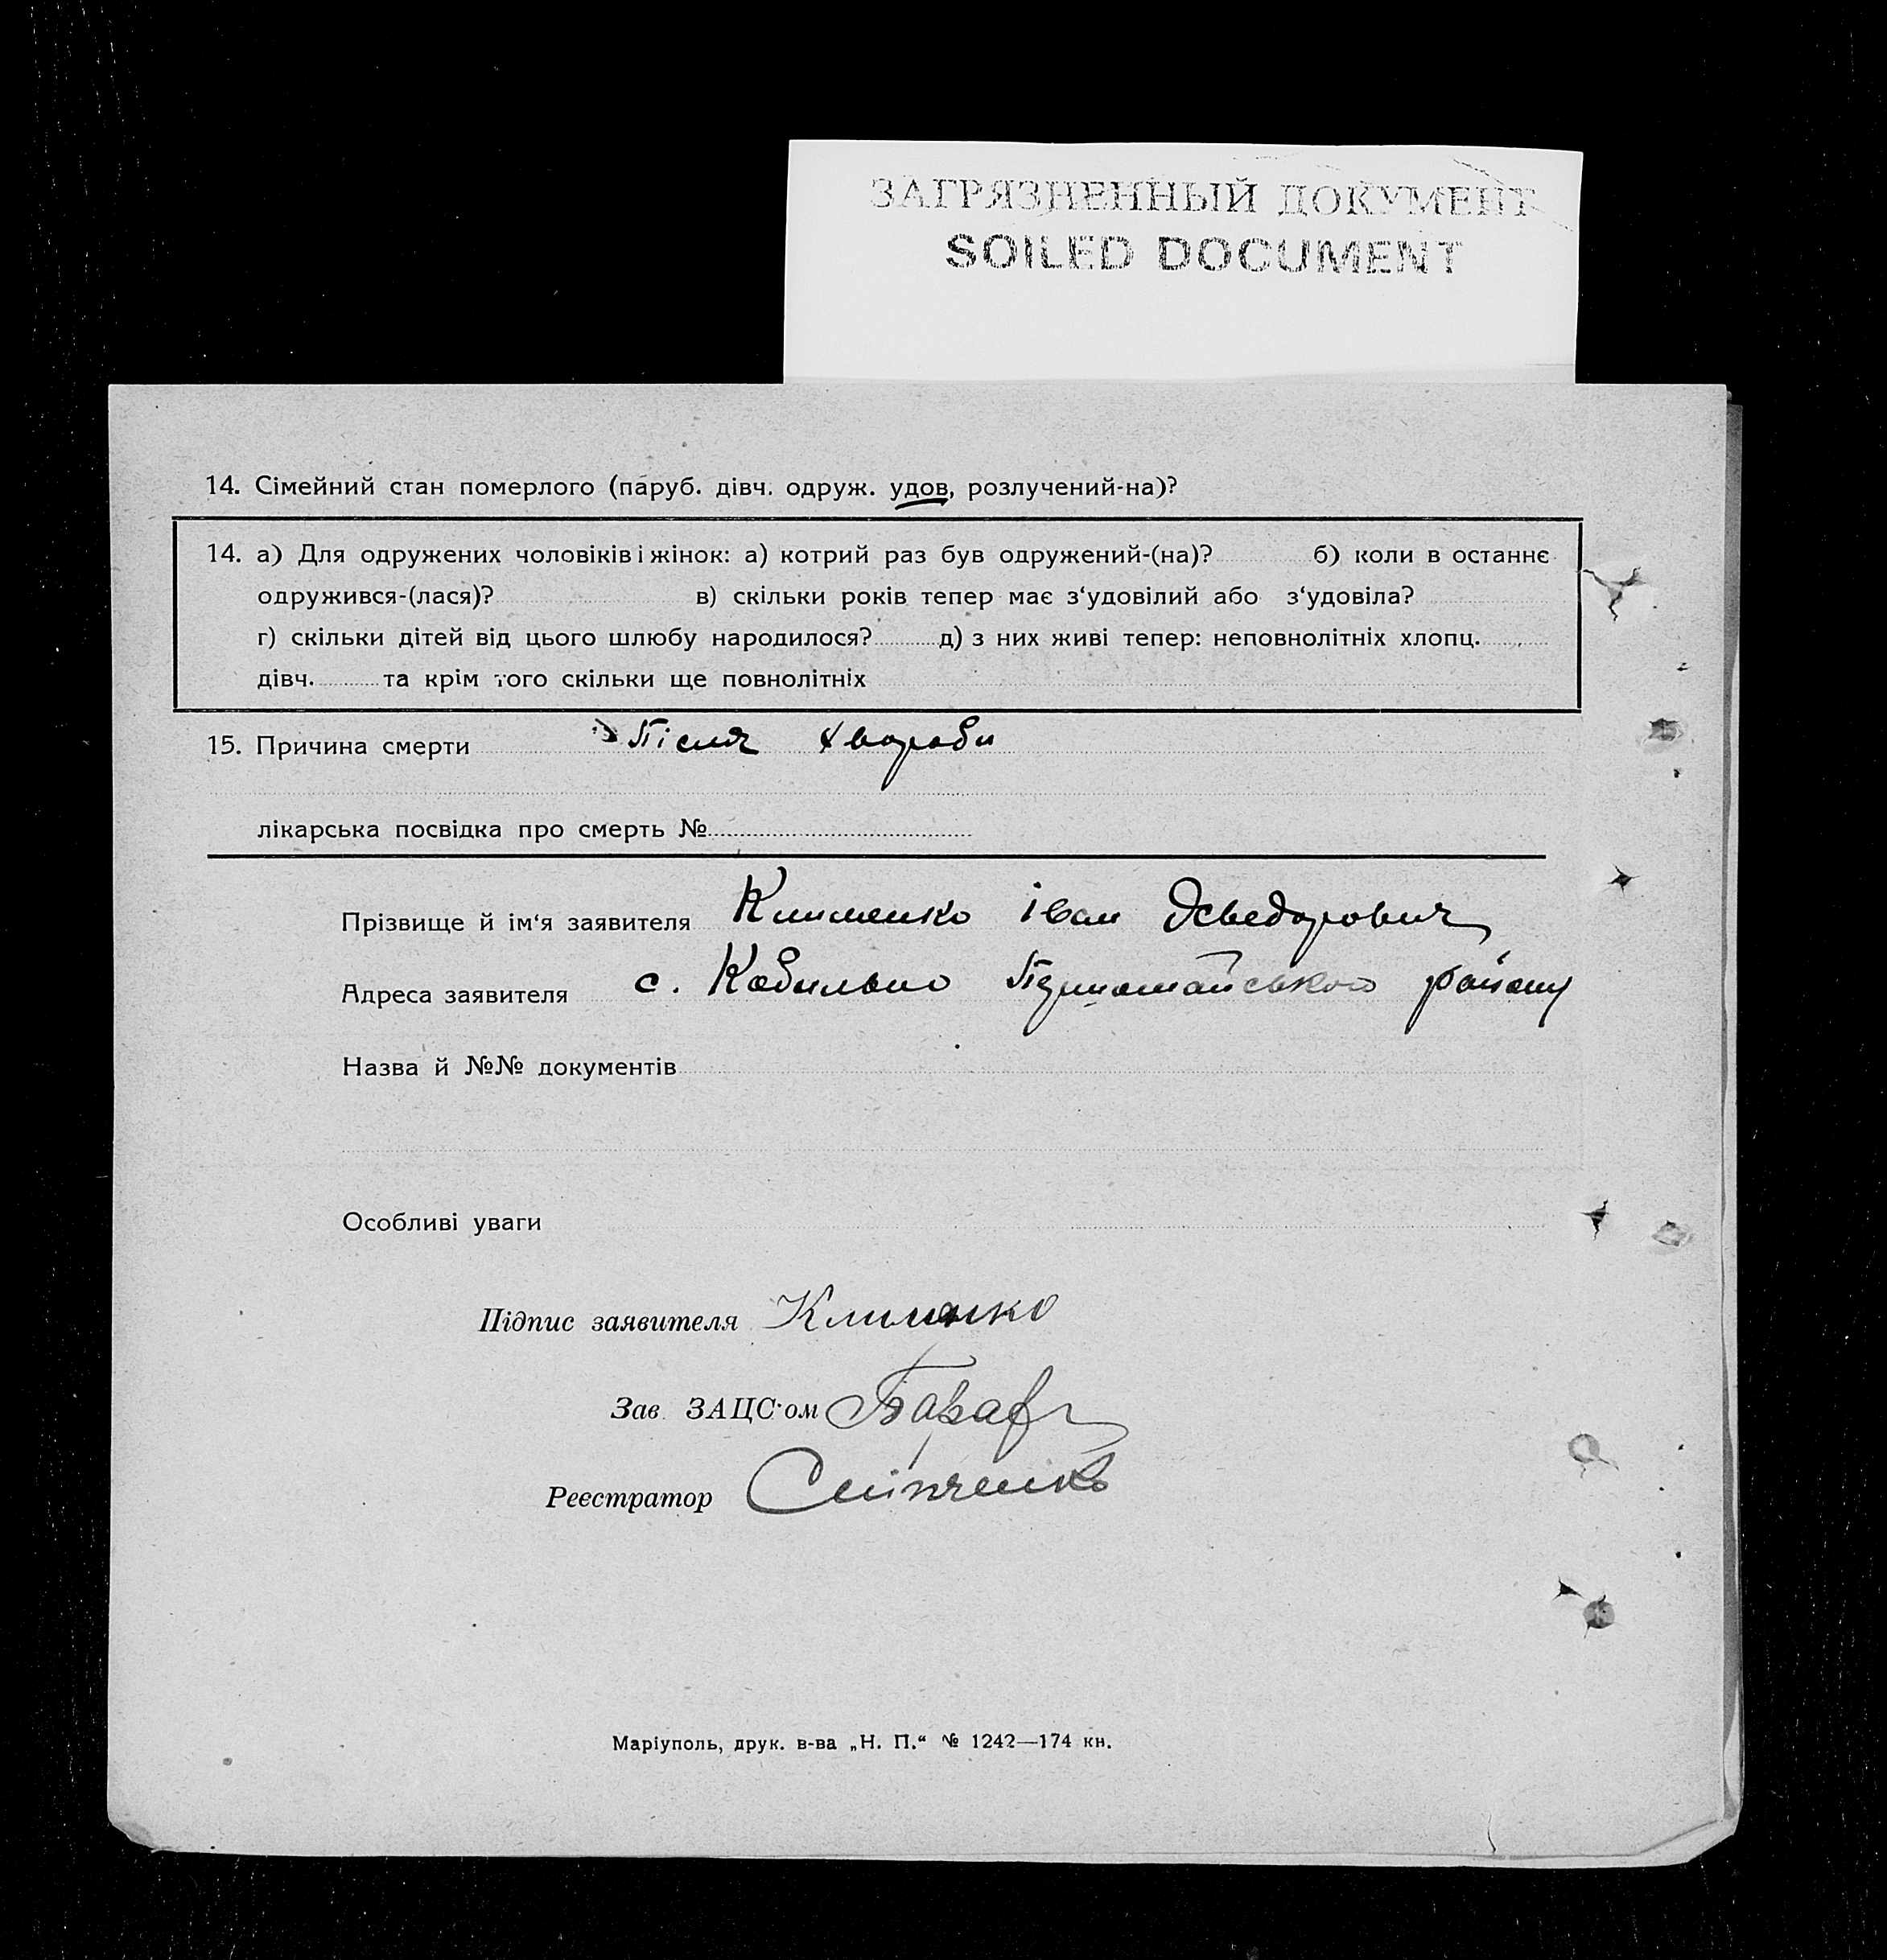 ЗАГРЯЗНЕННЫЙ ДОКУМЕНТ
SOILED DOCUMENT
14. Сімейний стан померлого (паруб. дівч. одруж. удов, розлучений-на)?
14. а) Для одружених чоловіків і жінок: а) котрий раз був одружений-(на)? б) коли в останнє
одружився-(лася)? в) скільки років тепер має з‘удовілий або з‘удовіла?
г) скільки дітей від цього шлюбу народилося? д) з них живі тепер: неповнолітніх хлопц.
дівч. та крім того скільки ще повнолітніх
15. Причина смерти Після хвороби
лікарська посвідка про смерть №
Прізвище й ім‘я заявителя Клименко Іван
Адреса заявителя с. Кобильно району
Назва й №№ документів
Особливі уваги
Підпис заявителя Клименко
Зав. ЗАЦС‘ом
Реєстратор
Маріуполь, друк. в-ва „Н. П.“ № 1242—174 кн.